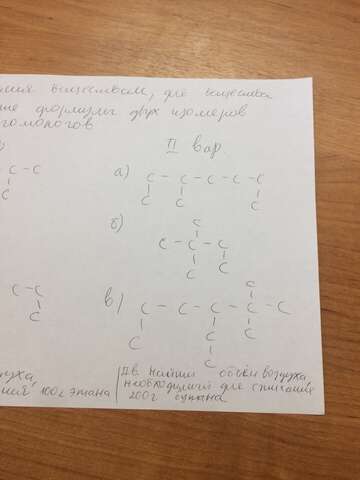 ния веществам, для вещества
ше формулы двух изомеров
гомологов
II вар
C - C
C
а) C - C - C - C - C
C C C
б) C
C - C - C
C C
C - C
C
в) C
C - C - C - C - C
C C C
C
духа,
ния 100г этана
II в. Найти объём воздуха
необходимый для сжигания
200г бутана